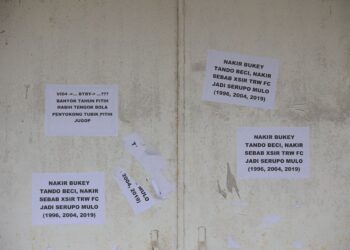 NAKIR BUKEY
TANDO BECI, NAKIR
SEBAB XSIR TRW FC
JADI SERUPO MULO
(1996, 2004, 2019)
BANYOK TAHUN PITIH
HABIH TENGOK BOLA
PENYOKONG TUBIK PITIH
JUGOP
NAKIR BUKEY
TANDO BECI, NAKIR
SEBAB XSIR TRW FC
JADI SERUPO MULO
(1996, 2004, 2019)
MULO
2004, 2019)
NAKIR BUKEY
TANDO BECI, NAKIR
SEBAB XSIR TRW FC
JADI SERUPO MULO
(1996, 2004, 2019)